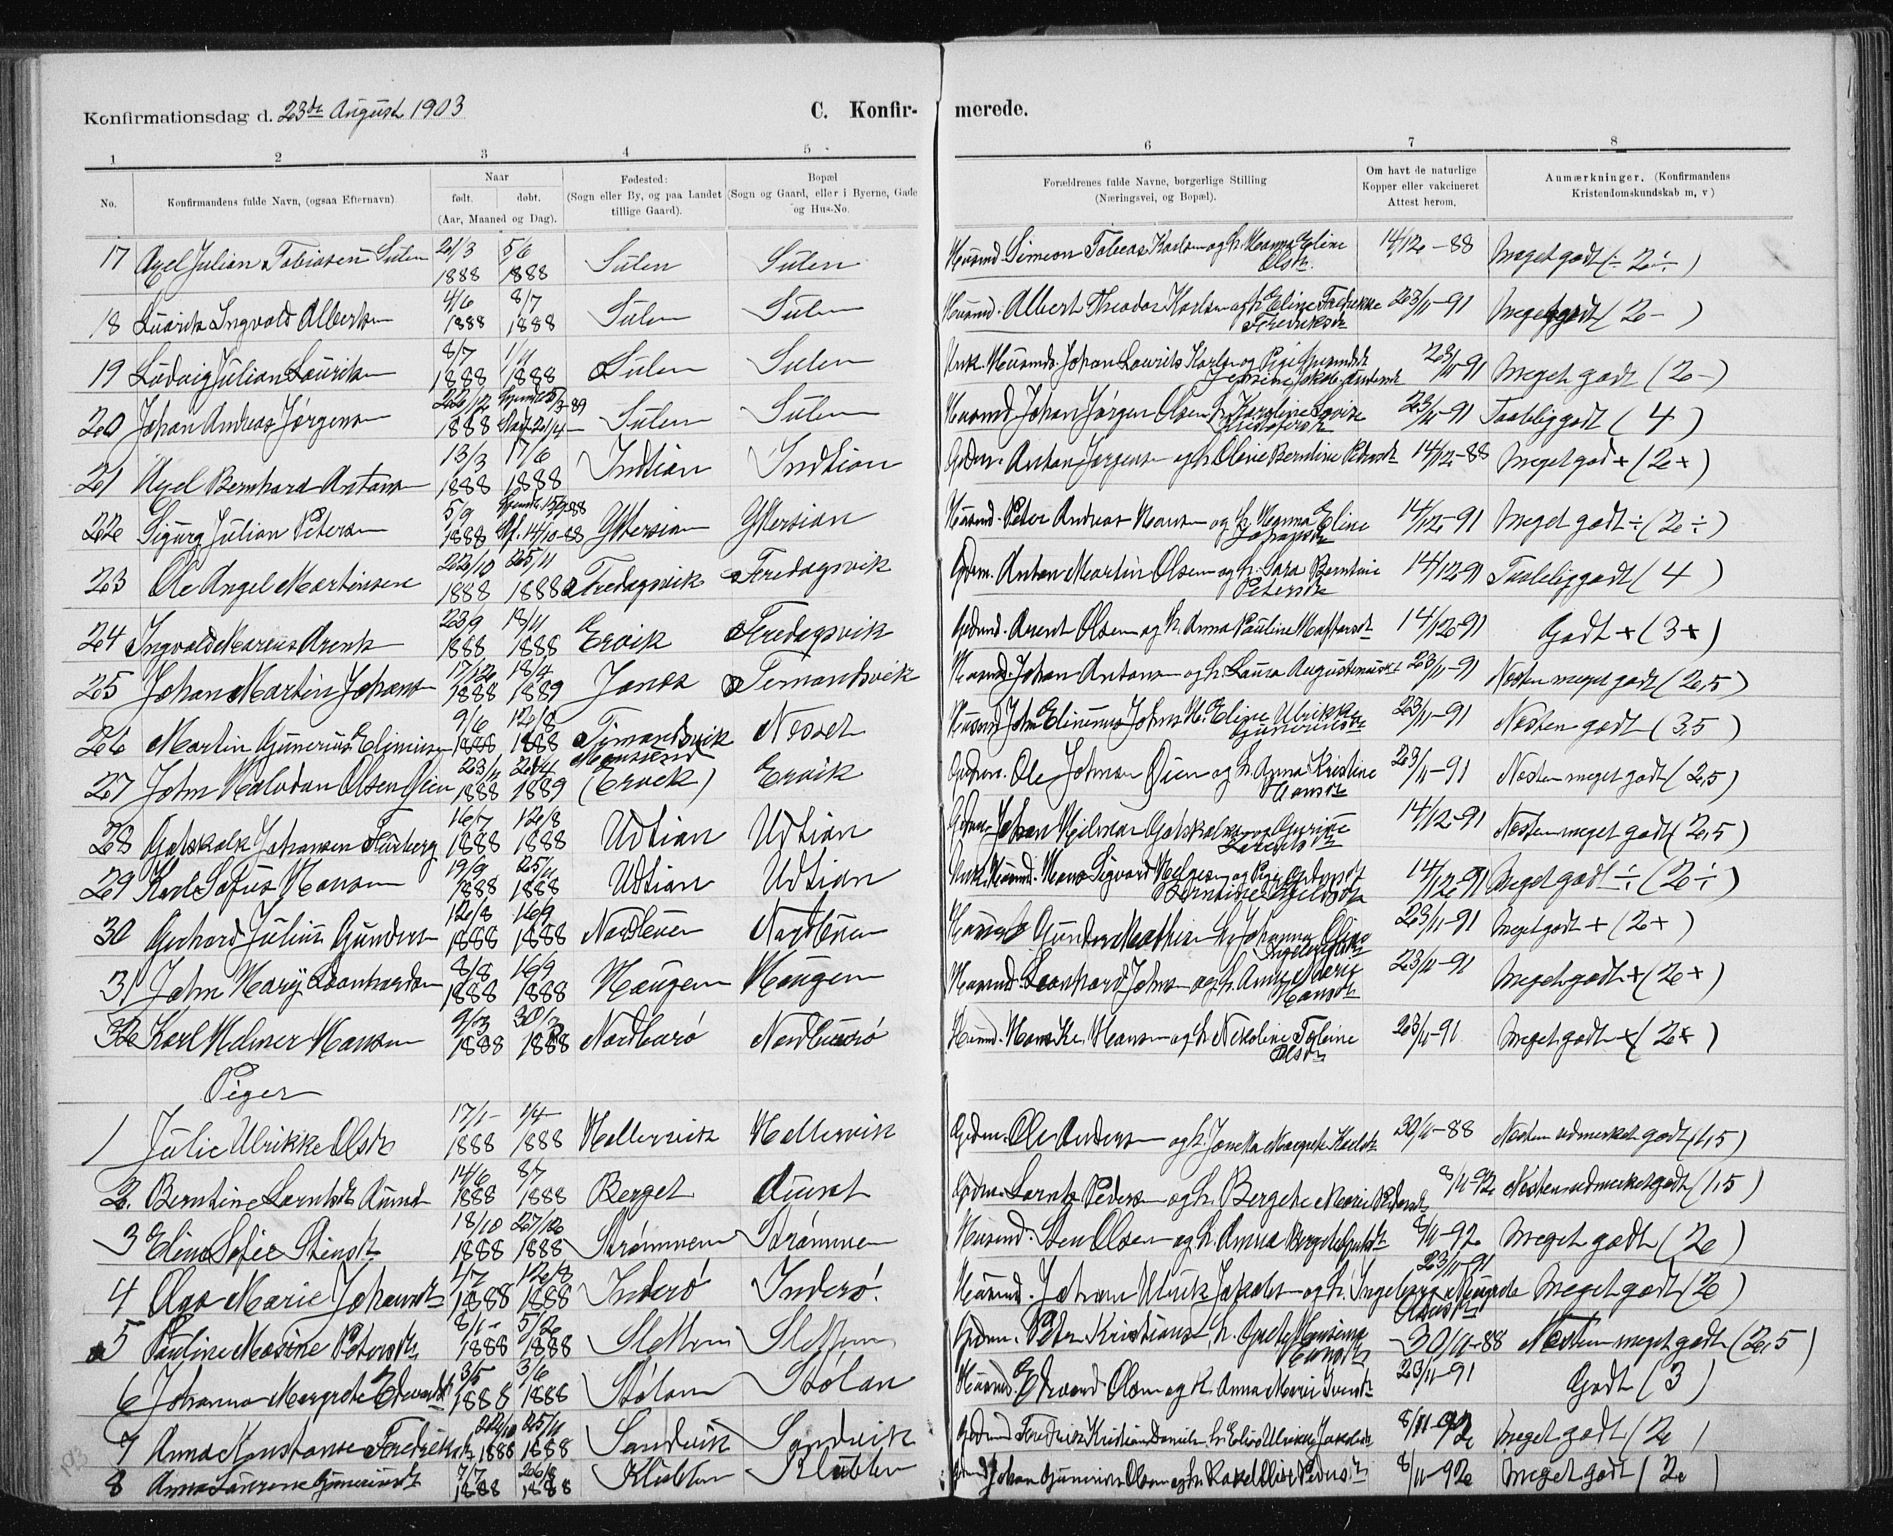 Konfirmationsdag d. 23de August 1903
C. Konfir- merede.
1 2 3 4 5 6 7 8
No.
Konfirmandens fulde Navn, (ogsaa Efternavn)
Naar
født. døbt.
(Aar, Maaned og Dag).
Fødested:
(Sogn eller By, og paa Landet
tillige Gaard).
Bopæl
(Sogn og Gaard, eller i Byerne, Gade
og Hus-No.
Forældrenes fulde Navne, borgerlige Stilling
(Næringsvei, og Bopæl).
Om havt de naturlige
Kopper eller vakcineret
Attest herom.
Anmærkninger. (Konfirmandens
Kristendomskundskab m, v)
17 Axel Julian Tobiasen Sulen 21/3 1888 5/6 1888 Sulen Sulen Husmd. Simeon Tobias Karlsen og h. Hanna Eline Olsdr. 14/12-88 Meget godt (÷ 2÷)
18 Lauritz Ingvald Albertsen 4/6 1888 8/7 1888 Sulen Sulen Husmd. Albert Theodor Karlsen og h. Eline Fredrikke Fredriksdr 23/11-91 Meget godt (2-)
19 Ludvig Julian Lauritsen 8/7 1888 1888 Sulen Sulen Unk. Husmds. Johan Laurits Karlsen og Pige 23/11-91 Meget godt (2-)
20 Johan Andreas Jørgensen 22/12 1888 Sulen Sulen Husmd. Johan Jørgen Olsen h. Karoline Lovise 23/11-91 Taalelig godt (4)
21 Axel Bernhard Antonsen 13/3 1888 17/6 1888 Indtian Indtian Gdm. Anton Jørgensen og h. Oline Berntine Pedersdt 14/12-88 Meget god+ (2+)
22 Sigurg Julian Petersen 5/9 1888 14/10-88 Ytersian Ytersian Husmd. Peter Andreas Hansen og h. Hanna Eline 14/12-91 Meget godt ÷ (2÷)
23 Ole Angel Martinsen 22/10 1888 25/11 1888 Fredagsvik Fredagsvik Gdm. Anton Martin Olsen og h. Sara Berntine Petersdr 14/12-91 Taalelig godt (4)
24 Ingvald Marius Arents 23/9 1888 18/11 1888 Ervik Fredagsvik Gdmd. Arent Olsen og h. Anna Pauline 14/12-91 Godt + (3+)
25 Johan Martin Johans 17/12 1888 18/4 1889 Janes Timandsvik Husmd. Johan Antons og h. Laura 23/11-91 Nesten meget godt (2,5)
26 Martin Gunerius Eliniusen 9/6 1888 12/8 1888 Timandsvik Nesset Husmd John Elinius Johns h. Eline Ulrikke Guneriusdr 23/11-91 Nesten godt (3,5)
27 John Halvdan Olsen Øien 23/11 1888 1889 (Ervik) Ervik Gdm. Ole Johnsen Øien og h. Anna Kristine Hansdr 23/11-91 Nesten meget godt (2,5)
28 Gotskalk Johansen Furberg 16/7 1888 12/8 1888 Udtian Udtian Gdm. Johan Hilmer 14/12-91 Nesten meget godt (2,5)
29 Karl Sofus Hansen 19/9 1888 25/11 1888 Udtian Udtian Unk. Husmd. Hans Sigvard Helgesen og Pige 14/12-91 Meget godt ÷ (2÷)
30 Gerhard Julius Gunders 12/8 1888 16/9 1888 Gunder Mathisen h. Johanna Oline 23/11-91 Meget godt + (2+)
31 John Mary Leonhardsen 8/8 1888 16/9 1888 Haugen Haugen Husmd. Leonhard Johns og h. Hansdr 23/11-91 Meget godt + (2+)
32 Karl Helmer Hansen 9/3 1888 30/3 1888 Husmd. Hans Kr. Hansen og h. Nekoline Olsdr 23/11-91 Meget godt + (2+)
Piger
1 Julie Ulrikke Olsdr 17/1 1888 1/4 1888 Hellesvik Hellesvik Gdm. Ole Anders og h. Jonetta Margrete 30/11-88 Nesten udmerket godt (1,5)
2. Berntine Lorntsdr Aunet 14/6 1888 8/7 1888 Berget Aunet Gdm. Lornts Peders og h. Bergete Marie Pedersdt 8/11-92 Nesten udmerket godt (1,5)
3 Eline Sofie Stensdr 18/10 1888 27/12 1888 Strømmen Strømmen Husmd. Sten Olsen og h. Anna Bergete 8/11-92 Meget godt (2)
4 Olga Marie Johansdr 1/7 1888 12/8 1888 Inderø Inderø. Husmd. Johan Ulrik Jakobs og h. Ingeborg 23/11-91 Meget godt (2)
5 Pauline Masine Petersdr 8/1 1888 5/2 1888 Sletten Sletten Gdm. Peter Kristians h. Hansdr - 30/11-88 Nesten meget godt (2,5)
6 Johanna Margrete Edvardsdt 3/5 1888 3/6 1888 Stølan Stølan Husmd. Edvard Olsen og h. Anna Marie 23/11-91 Godt (3)
7 Anna Konstanse Fredriksdr 22/10 1888 25/11 1888 Sandvik Sandvik Gdmd Fredrik Kristian Daniels h. Elise Ulrikke Jakobsdr 8/11-92 Meget godt (2)
8 Anna Laurense Guneriusdt 7/7 1888 26/8 1888 Klubben Klubben Johan Gunerius Olsen og h. Rakel Oline Pedersdt 8/11-92 Meget godt (2)